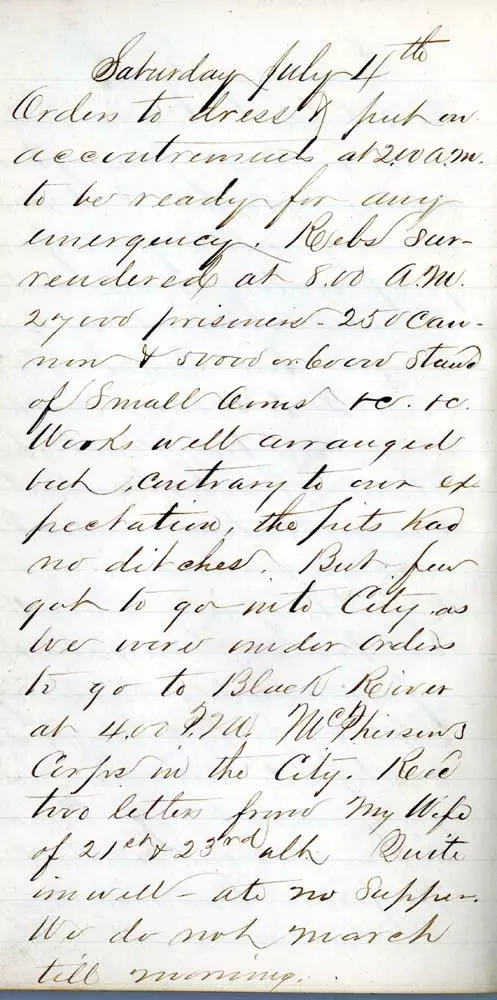 Saturday July 4th
Orders to dress & put on
accoutrements at 2.00 a.m.
to be ready for any
emergency. Rebs sur-
rendered at 8.00 A.M.
27000 prisoners - 250 can-
non & 50000 or 60000 stand
of Small Arms &c. &c.
Works well arranged
but, contrary to our ex-
pectation, the pits had
no ditches. But few
got to go into City, as
we were under orders
to go to Black River
at 4.00 P.M. McPhersons
Corps in the City. Recd
two letters from My Wife
of 21st & 23rd ult. Quite
unwell - ate no supper.
We do not march
till morning.